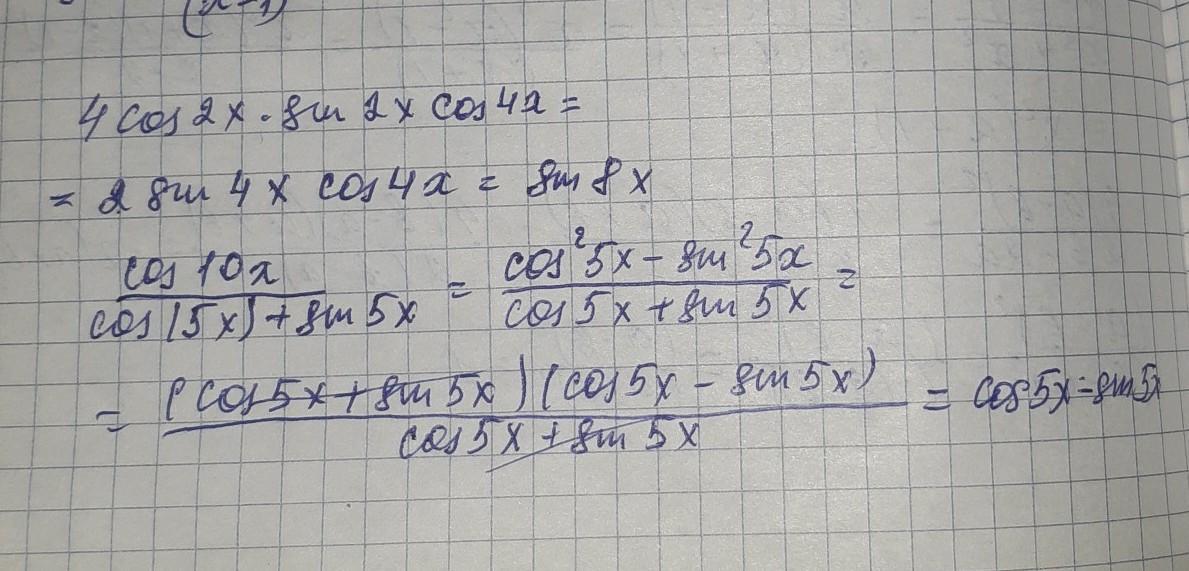 (x-1)
4 cos 2x · sin 2x cos 4x =
= 2 sin 4x cos 4x = sin 8x
cos 10x / cos(5x) + sin 5x = cos²5x - sin²5x / cos 5x + sin 5x =
= (cos 5x + sin 5x)(cos 5x - sin 5x) / cos 5x + sin 5x = cos 5x - sin 5x